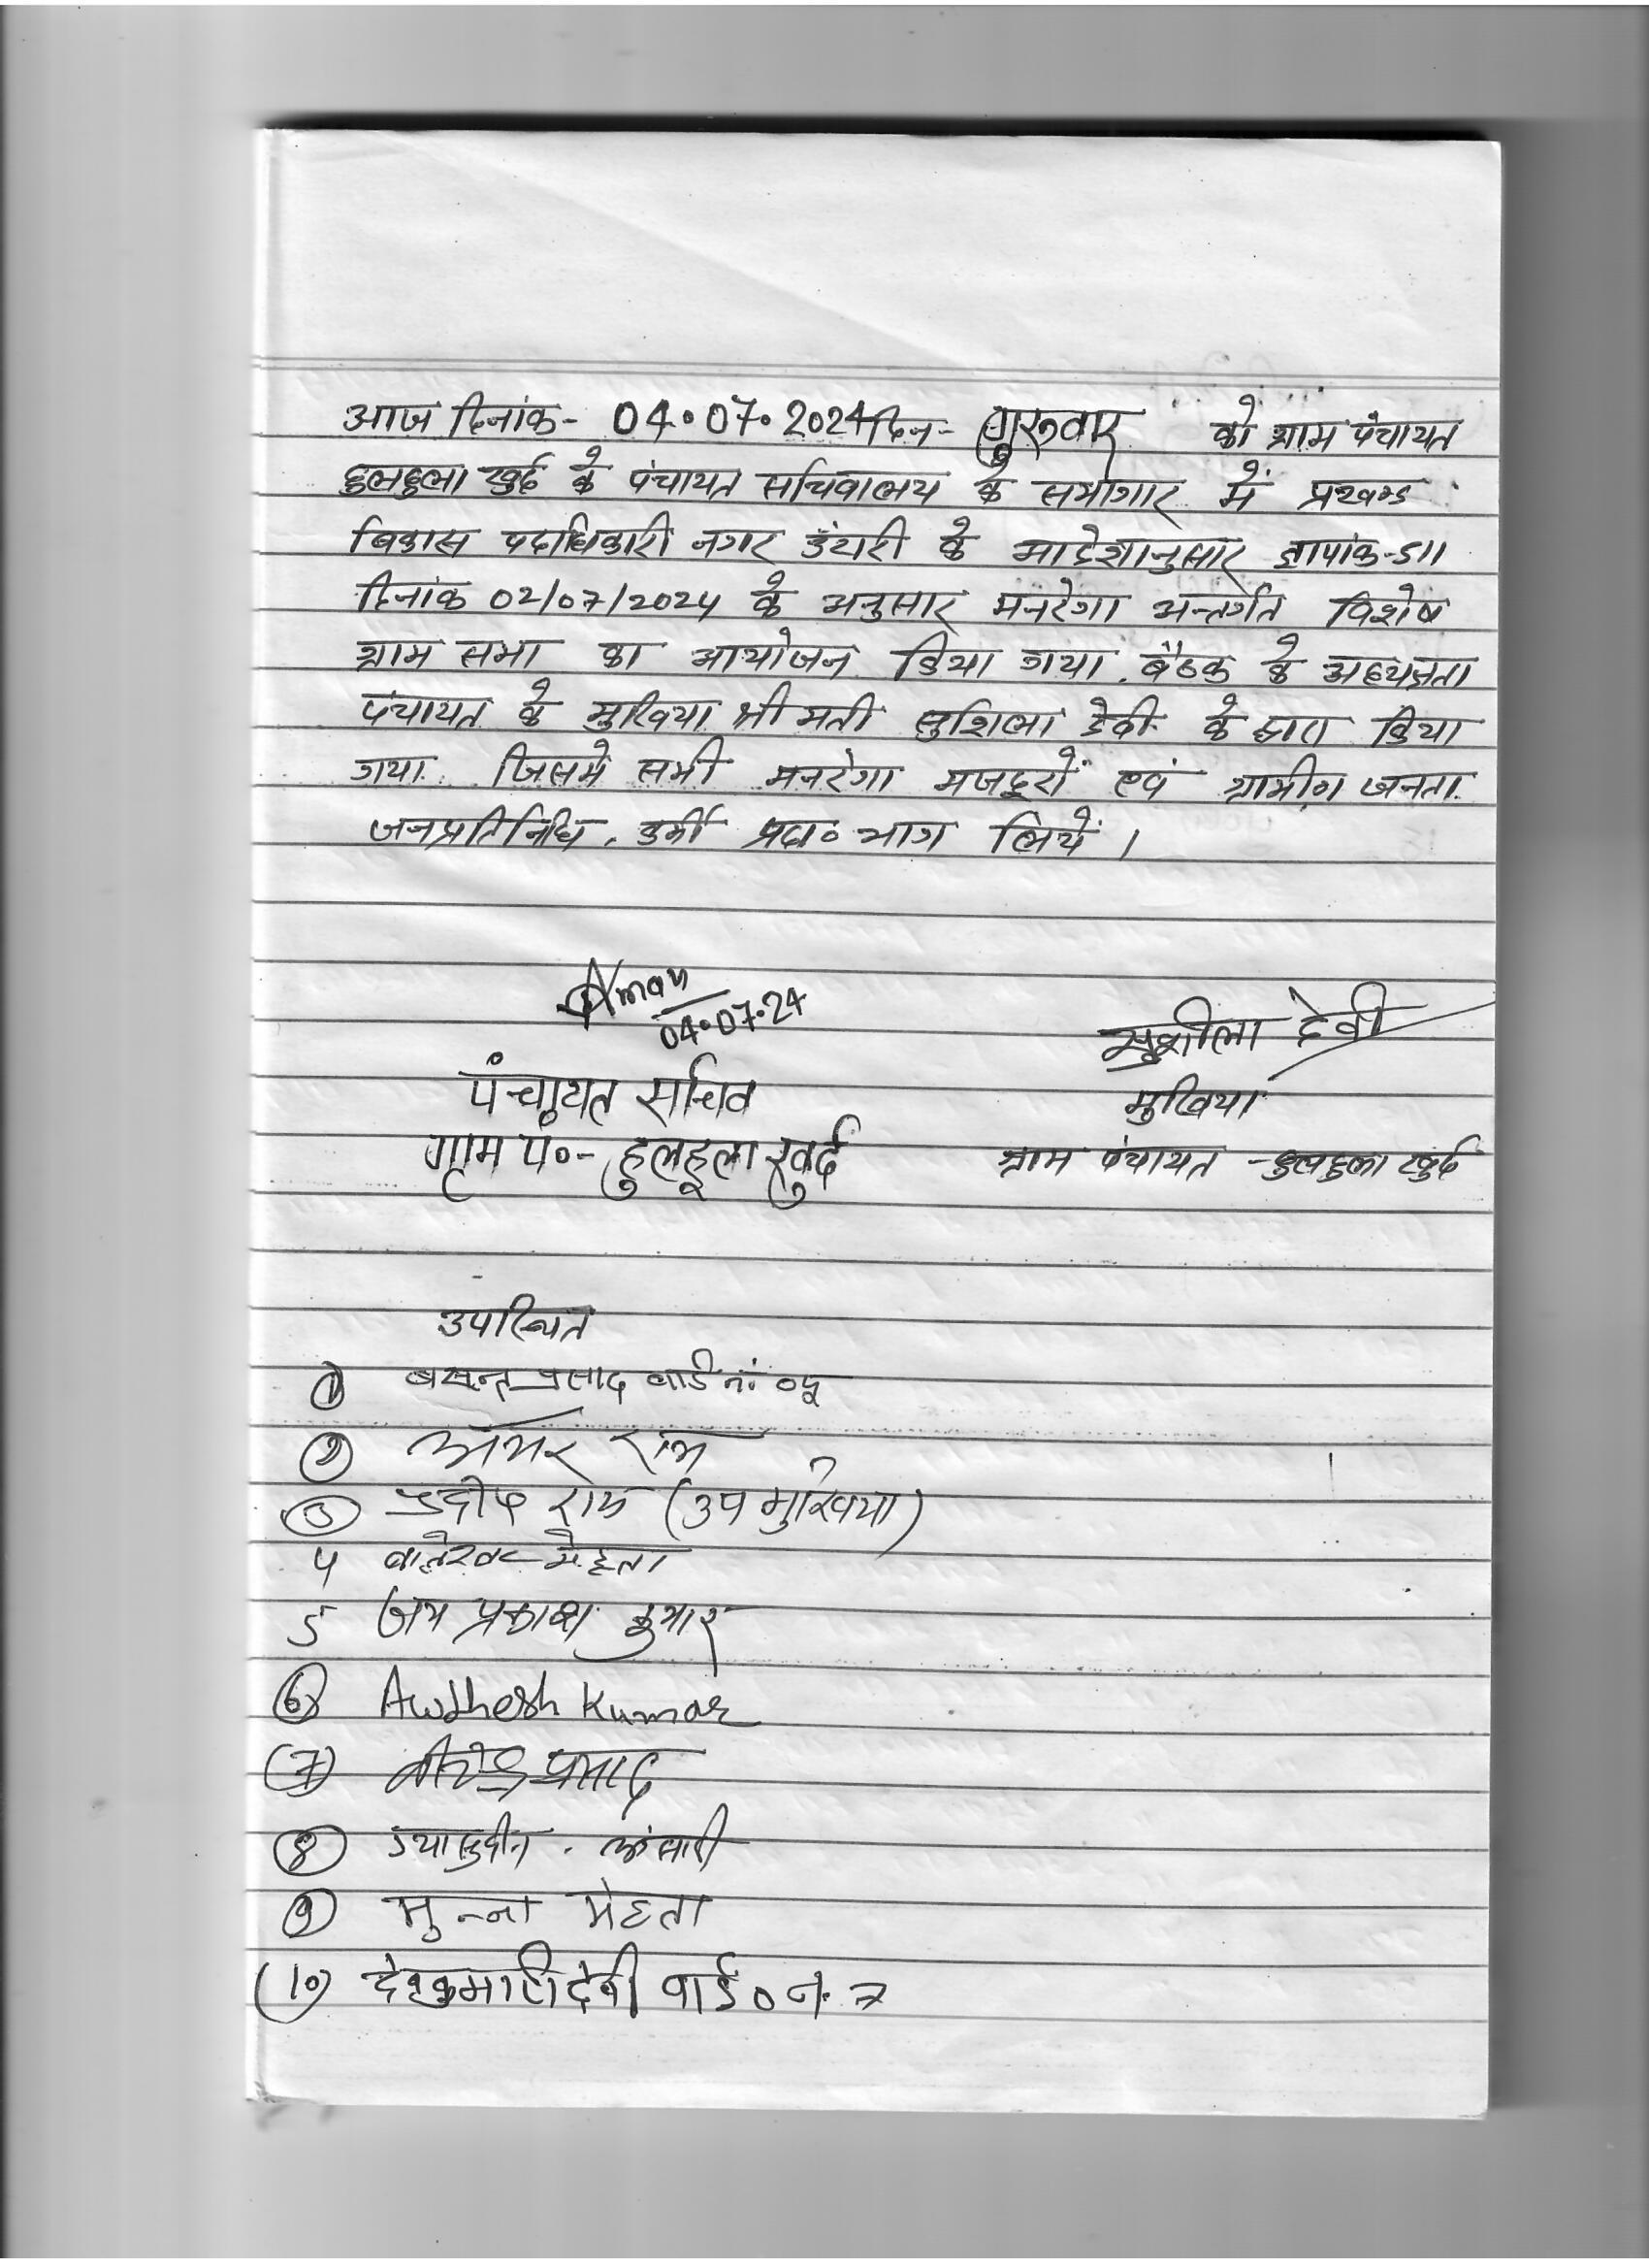 आज दिनांक- 04.07.2024 दिन- गुरुवार को ग्राम पंचायत
हुलहुला खुर्द के पंचायत सचिवालय के सभागार में प्रखण्ड
विकास पदाधिकारी नगर उंटारी के आदेशानुसार ज्ञापांक-511
दिनांक 02/07/2024 के अनुसार मनरेगा अन्तर्गत विशेष
ग्राम सभा का आयोजन किया गया. बैठक के अध्यक्षता
पंचायत के मुखिया श्रीमती सुशिला देवी के द्वारा किया
गया. जिसमे सभी मनरेगा मजदूरों एवं ग्रामीण जनता
जनप्रतिनिधि, कर्मी भाग लिये।
Aman
04.07.24
सुशीला देवी
पंचायत सचिव
मुखिया
ग्राम पं०- हुलहूला खुर्द
ग्राम पंचायत - हुलहुला खुर्द
उपस्थित
① बसन्त प्रसाद वार्ड नं० ०५
② अमर राम
③ प्रदीप राम (उप मुखिया)
४ मेहता
5 जय प्रकाश कुमार
⑥ Awdhesh Kumar
(7) प्रसाद
⑧ अंसारी
⑨ मुन्ना मेहता
(10) देवी वार्ड ० न. 7